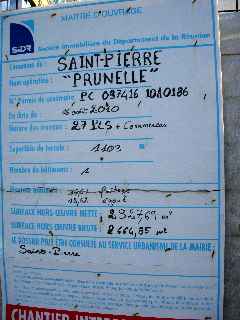 MAITRE D'OUVRAGE
SIDR
Société Immobilière du Département de la Réunion
Commune de : SAINT-PIERRE
Nom opération : "PRUNELLE"
N° Permis de construire PC 097416 10A0186
En date de : 2010
Nature des travaux : 27 PLS + Commerces
Superficie du terrain : 1102 m²
Nombre de bâtiments : 1
SURFACE HORS-OEUVRE NETTE : m²
SURFACE HORS-OEUVRE BRUTE : m²
LE DOSSIER PEUT ÊTRE CONSULTÉ AU SERVICE URBANISME DE LA MAIRIE :
Saint-Pierre